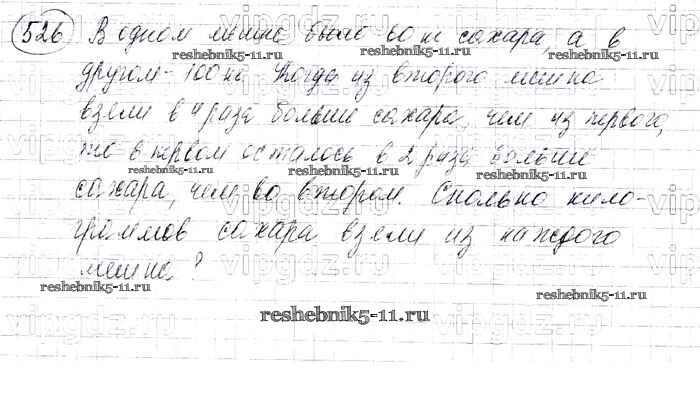 526 В одном мешке было 60 кг сахара, а в
другом - 100 кг. Когда из второго мешка
взяли в 4 раза больше сахара, чем из первого,
то в первом осталось в 2 раза больше
сахара, чем во втором. Сколько кило-
граммов сахара взяли из каждого
мешка?
reshebnik5-11.ru
reshebnik5-11.ru
reshebnik5-11.ru
reshebnik5-11.ru
reshebnik5-11.ru
reshebnik5-11.ru
reshebnik5-11.ru
vipgdz.ru
vipgdz.ru
vipgdz.ru